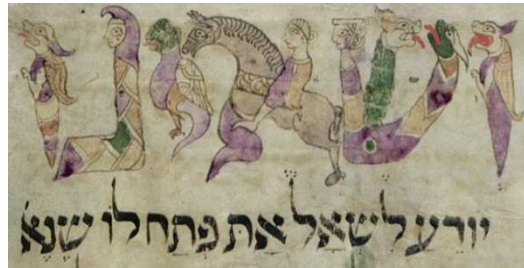 ושאינו
יודע לשאל את פתח לו שנא